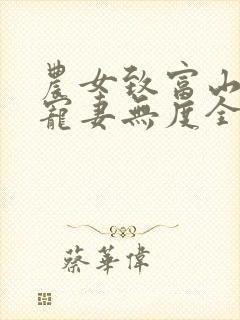 農女致富山
寵妻無度全
蔡華偉